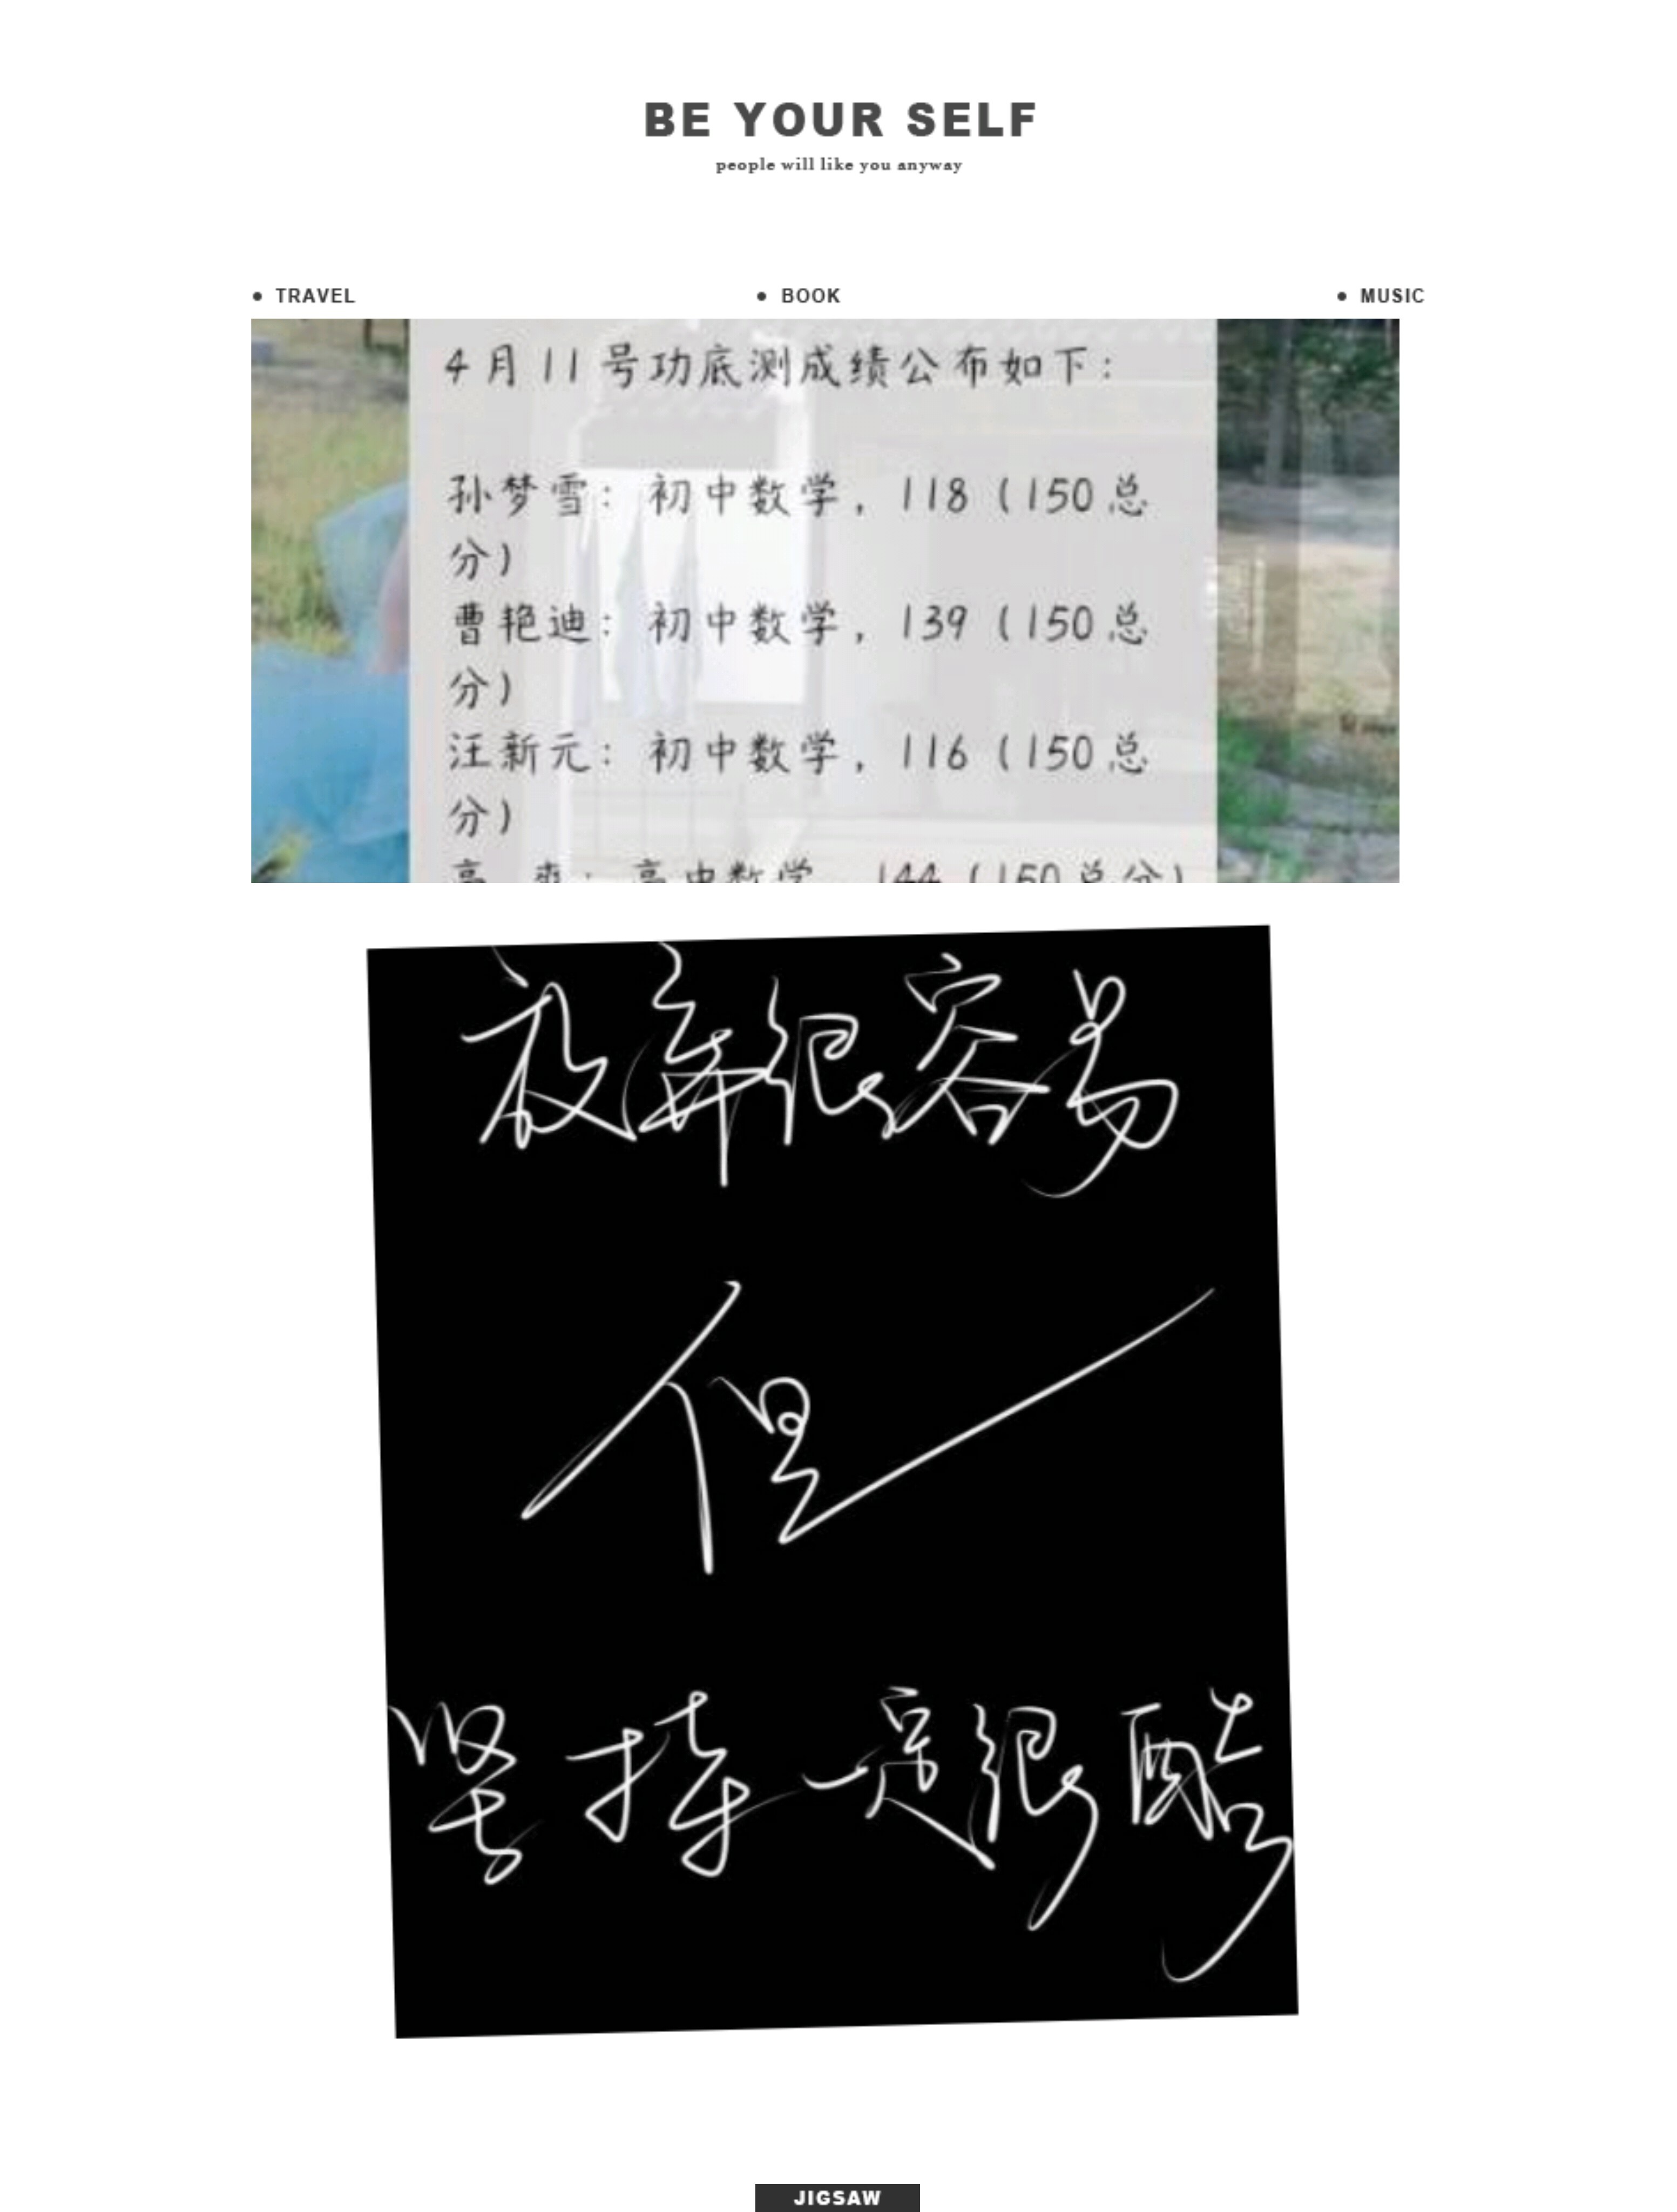 BE YOUR SELF
people will like you anyway
TRAVEL
BOOK
MUSIC
4月11号功底测成绩公布如下：
孙梦雪：初中数学，118（150总
分）
曹艳迪：初中数学，139（150总
分）
汪新元：初中数学，116（150总
分）
高 爽：高中数学，144（150总分）
放弃很容易
但
坚持一定很酷
JIGSAW